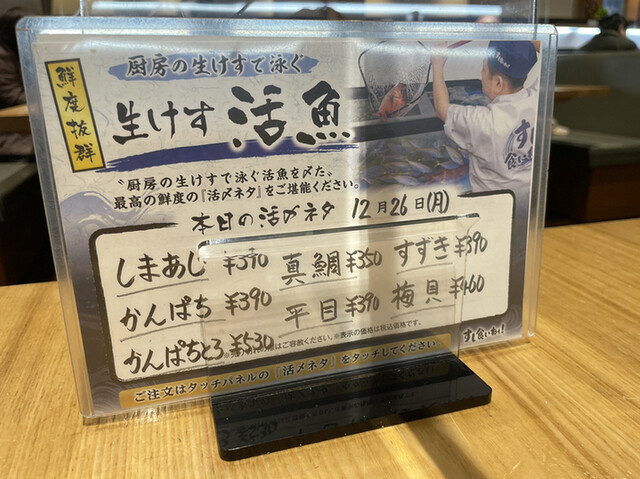 鮮度抜群
厨房の生けすで泳ぐ
生けす活魚
〝厨房の生けすで泳ぐ活魚を〆た〟
最高の鮮度の『活〆ネタ』をご堪能ください。
本日の活〆ネタ 12月26日(月)
しまあじ ¥390 真鯛 ¥350 すずき ¥390
かんぱち ¥390 平目 ¥390 梅貝 ¥460
かんぱちとろ ¥530
はご容赦ください。※表示の価格は税込価格です。
すし食いねぇ!
ご注文はタッチパネルの『活〆ネタ』をタッチしてください。